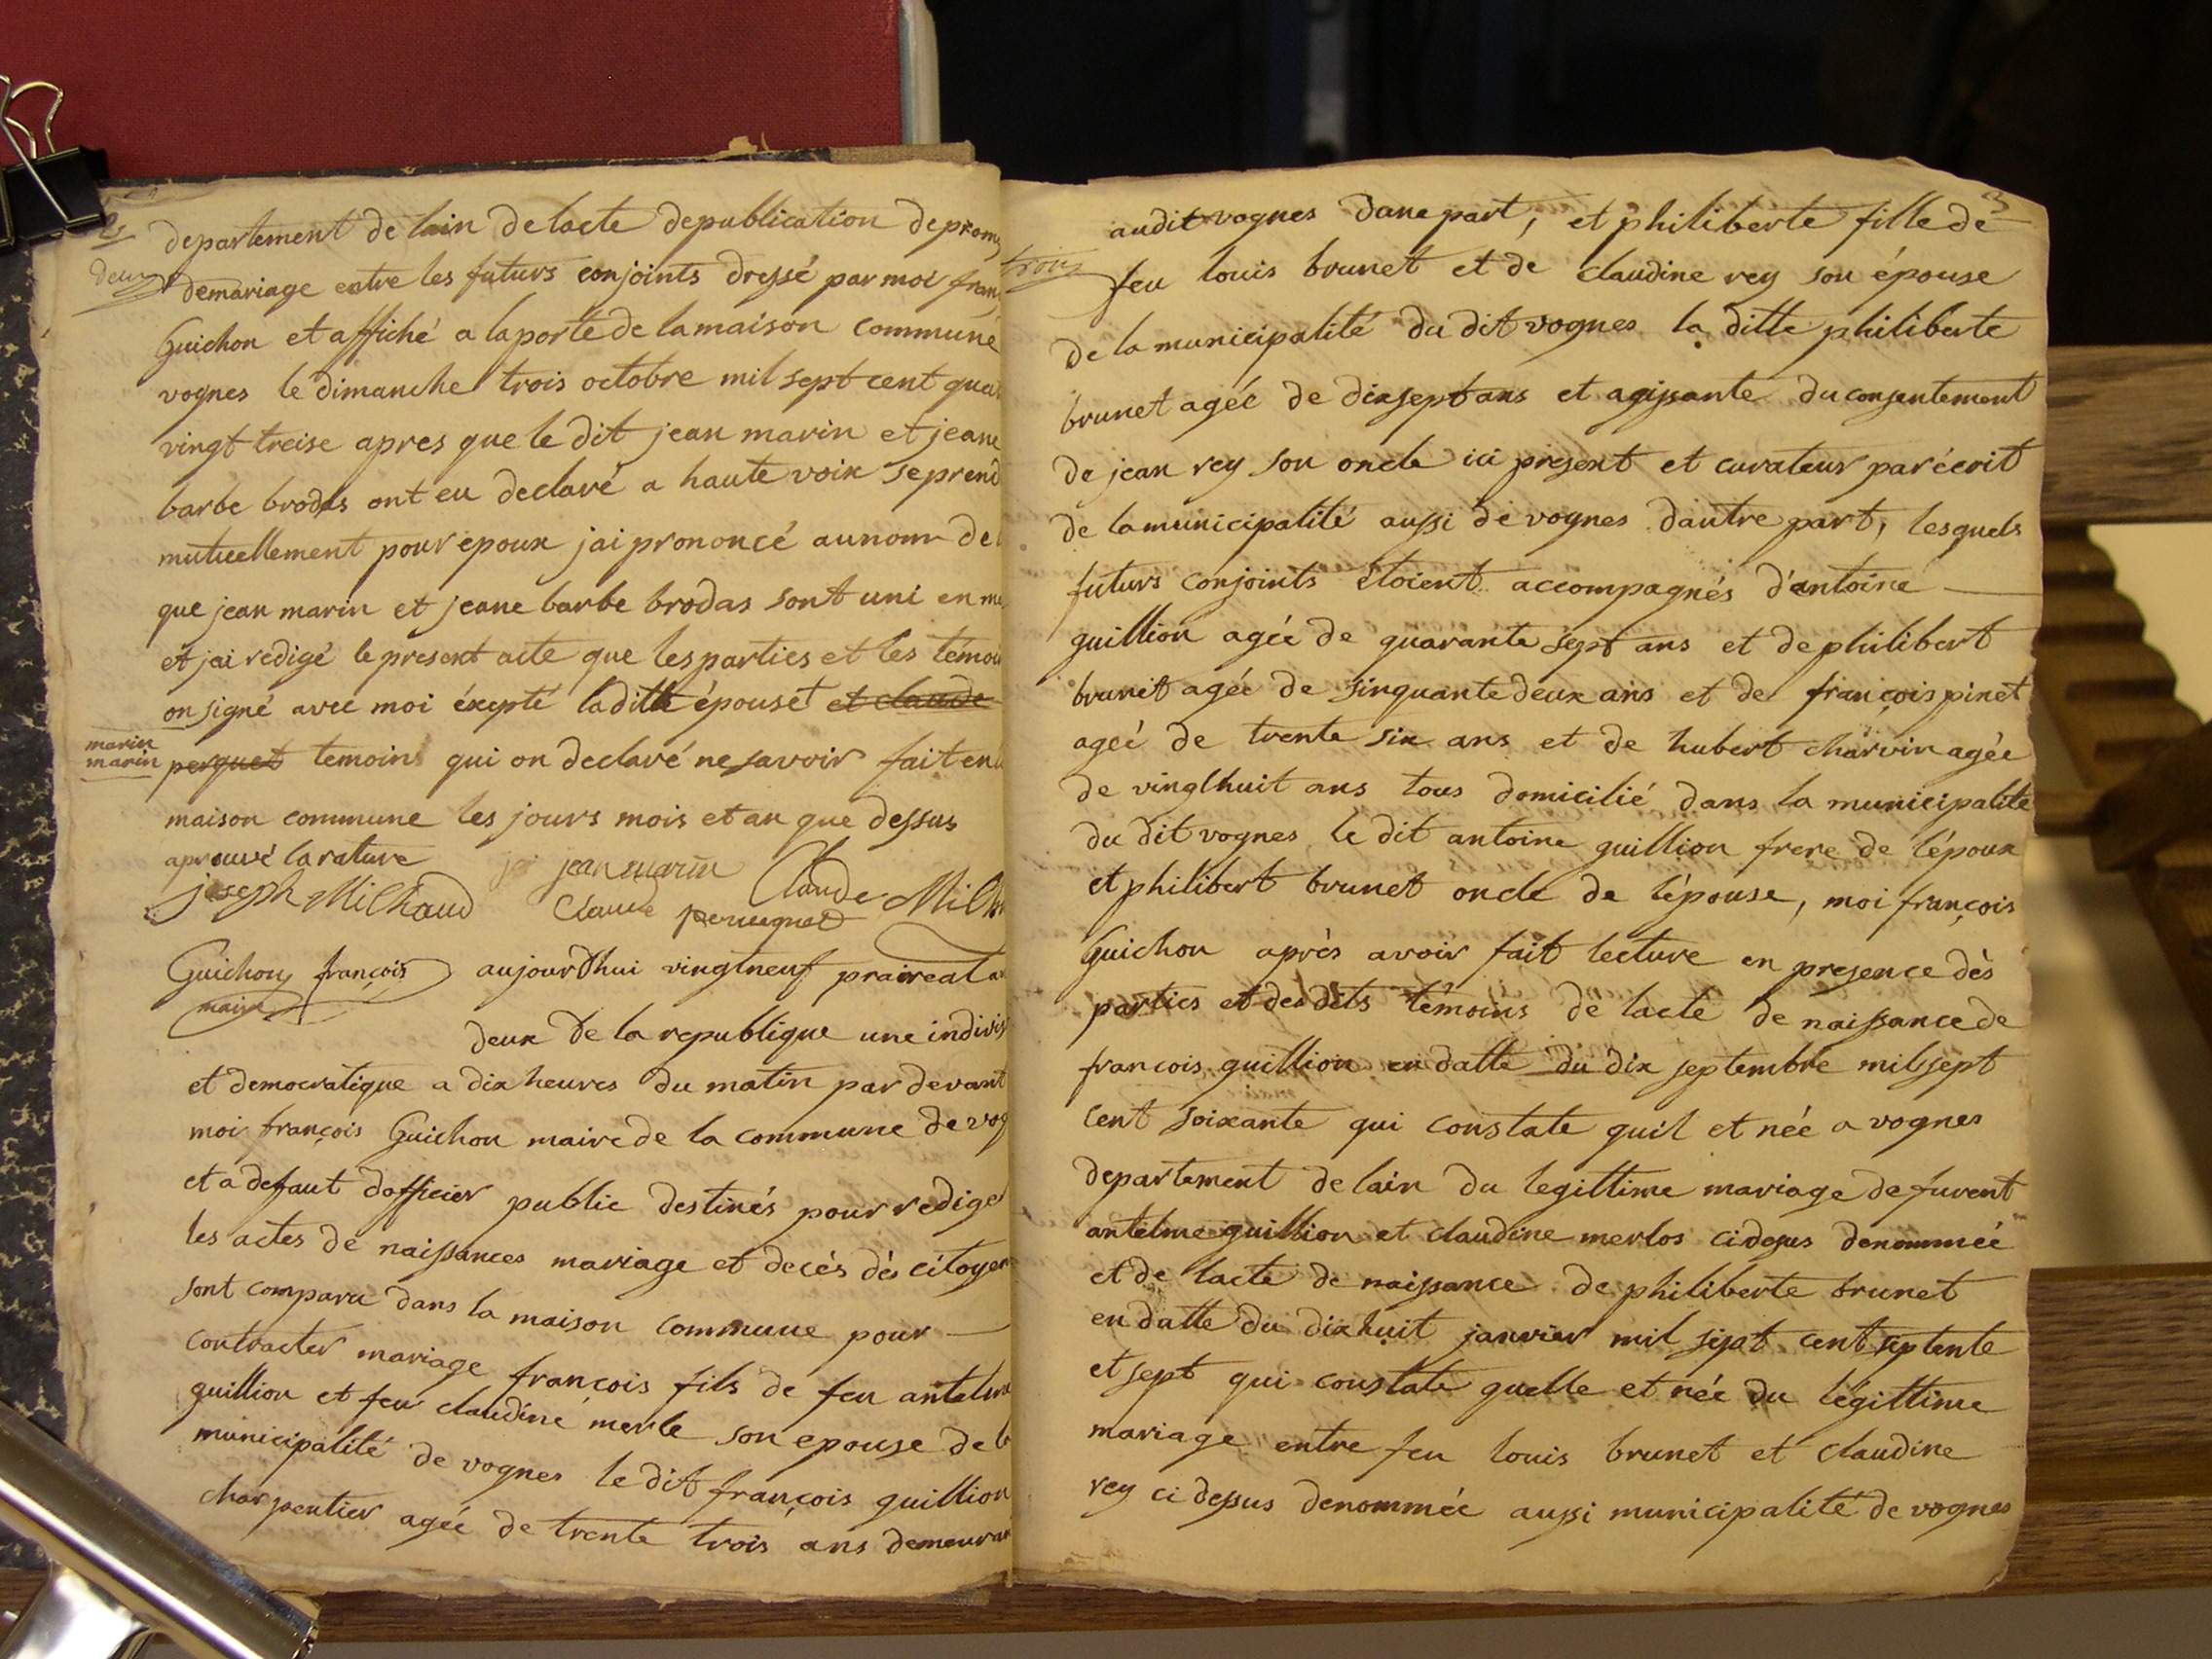 departement de lain de lacte depublication deprom
deux
demariage entre les futurs conjoints dressé par moi fran
Guichon et affiché a la porte de la maison commune
vognes le dimanche trois octobre mil sept cent quat
vingt treise apres que le dit jean marin et jeane
barbe brodas ont eu declaré a haute voix seprend
mutuellement pour epoux jai prononcé aunom de
que jean marin et jeane barbe brodas sont uni en ma
et jai redigé le present acte que les parties et les temoi
on signé avec moi éxepté laditte épouse et et claude
marin
marin
perquet temoins qui on declaré ne savoir fait en
maison commune les jours mois et an que dessus
aprouvé la rature
jean marin
joseph Milhaud
Claude Milh
Claude peruquet
Guichon françois
maire
aujourdhui vingtneuf praireal a
deux de la republique une indivis
et democratique a dix heures du matin par devant
moi françois Guichon maire de la commune de vog
et a defaut dofficier public destinés pour rediger
les actes de naissances mariage et decés dés citoyen
sont comparu dans la maison commune pour
contracter mariage francois fils de feu antelme
guillion et feu claudine merle son epouse de l
municipalité de vognes le dit françois guillion
charpentier agée de trente trois ans demeuran
3
audit vognes dune part, et philiberte fille de
trois
feu louis brunet et de claudine rey son épouse
de la municipalité du dit vognes la ditte philiberte
brunet agée de dixsept ans et agissante du consentement
de jean rey son oncle ici present et curateur par écrit
de la municipalité aussi de vognes dautre part, lesquels
futurs conjoints étoient accompagnés d'antoine
guillion agée de quarante sept ans et de philibert
brunet agée de sinquante deux ans et de françois pinet
ageé de trente six ans et de hubert charvin agée
de vingthuit ans tous domicilié dans la municipalité
du dit vognes le dit antoine guillion frere de l'époux
et philibert brunet oncle de l'épouse, moi françois
Guichon après avoir fait lecture en presence dès
parties et des dits témoins de lacte de naissance de
francois guillion en datte du dix septembre mil sept
cent soixante qui constate quil et née a vognes
departement de lain du legittime mariage de furent
antelme guillion et claudine merlos cidesus denommée
et de lacte de naissance de philiberte brunet
en datte du dixhuit janvier mil sept cent septente
et sept qui constate quelle et née du légittime
mariage entre feu louis brunet et claudine
rey ci dessus denommée aussi municipalité de vognes